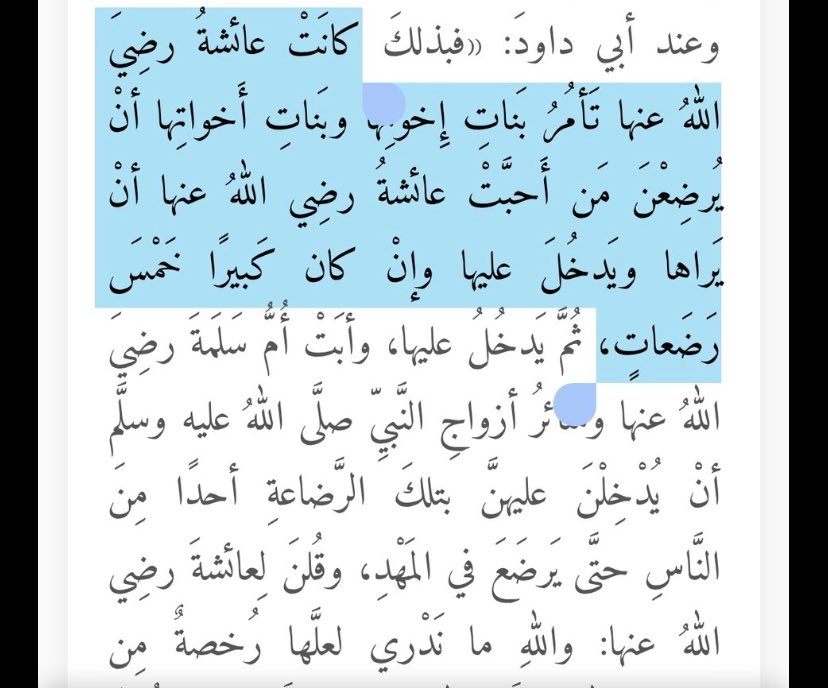 وعند أبي داودَ: «فبذلكَ كانَتْ عائشةُ رضِيَ
اللهُ عنها تَأمُرُ بَناتِ إِخوتِها وبَناتِ أَخواتِها أنْ
يُرضِعْنَ مَن أَحبَّتْ عائشةُ رضِي اللهُ عنها أنْ
يَراها ويَدخُلَ عليها وإنْ كان كَبيرًا خَمْسَ
رَضَعاتٍ، ثُمَّ يَدخُلُ عليها، وأبَتْ أُمُّ سَلَمةَ رضِيَ
اللهُ عنها وسائرُ أزواجِ النَّبيِّ صلَّى اللهُ عليه وسلَّم
أنْ يُدْخِلْنَ عليهنَّ بتلكَ الرَّضاعةِ أحدًا مِنَ
النَّاسِ حتَّى يَرضَعَ في المَهْدِ، وقُلنَ لِعائشةَ رضِي
اللهُ عنها: واللهِ ما نَدْري لعلَّها رُخصةٌ مِن